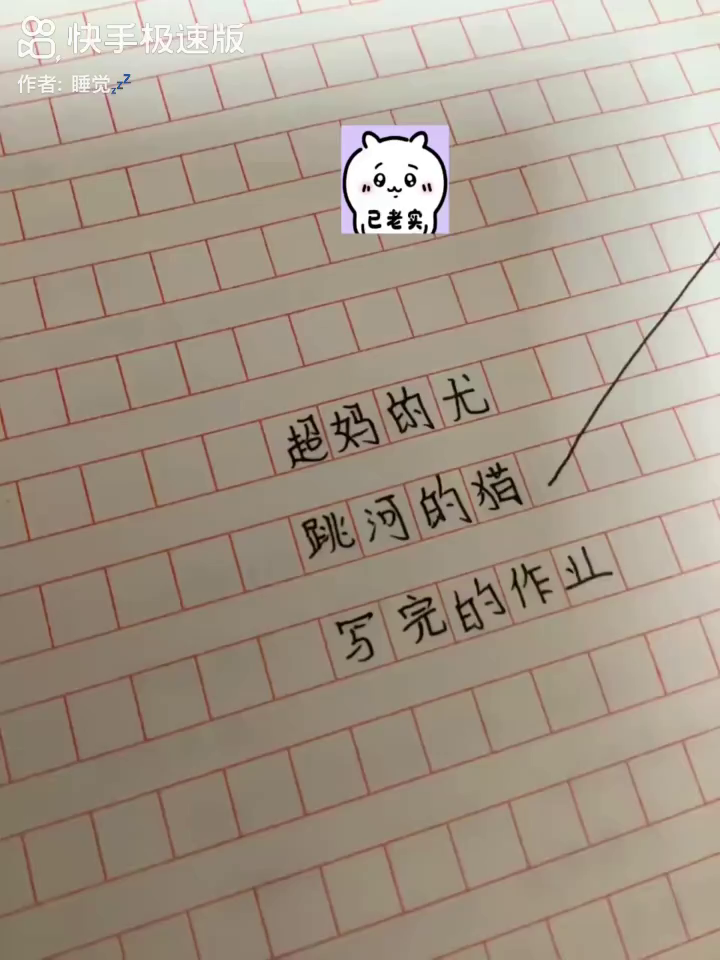 快手极速版
作者: 睡觉💤
已老实
超妈的尤
跳河的猫
写完的作业